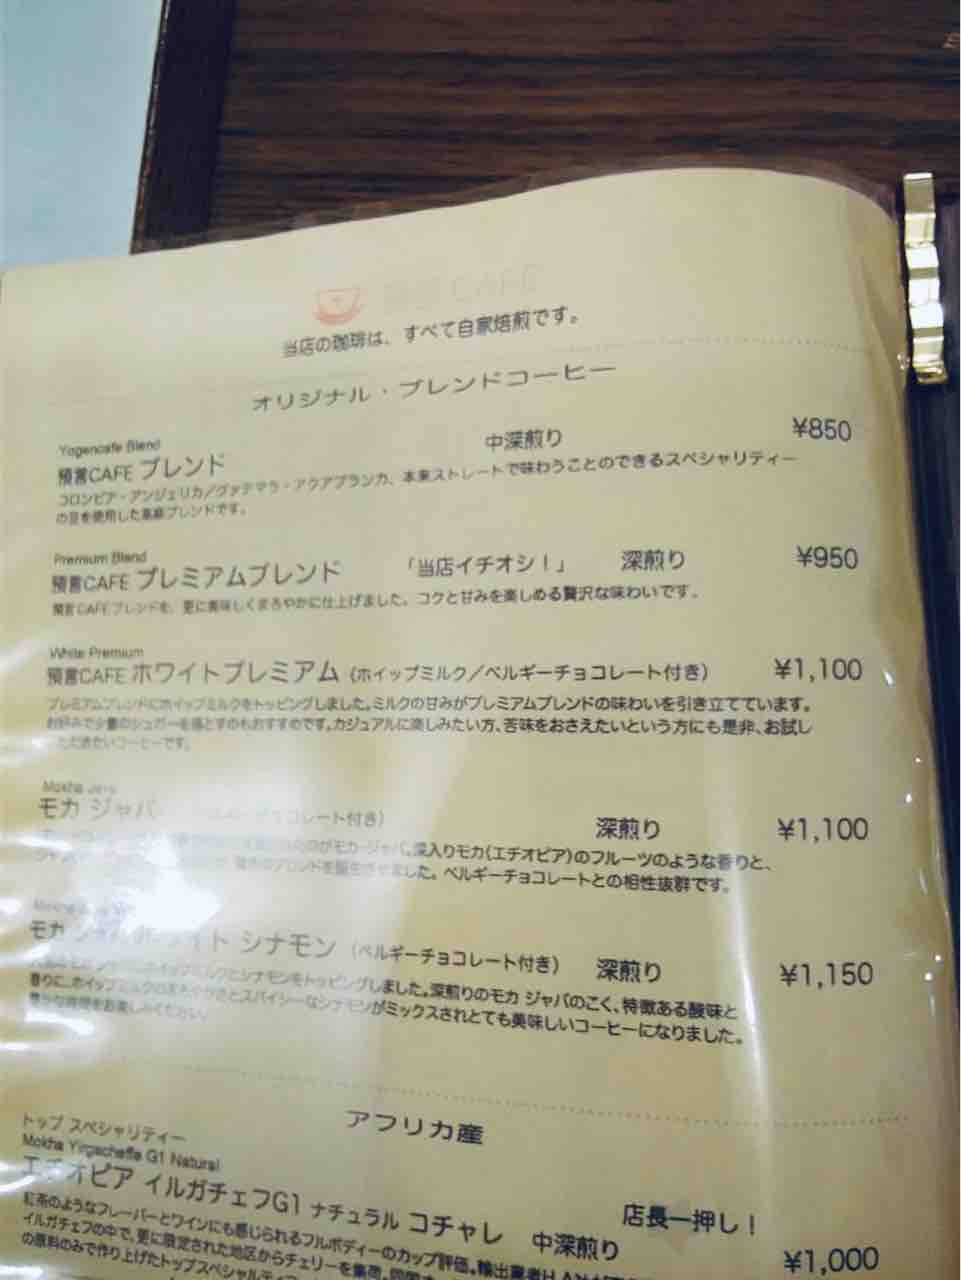 CAFE
当店の珈琲は、すべて自家焙煎です。
オリジナル・ブレンドコーヒー
Yogencafe Blend
預言CAFE ブレンド 中深煎り ¥850
コロンビア・アンジェリカ／グァテマラ・アクアブランカ、本来ストレートで味わうことのできるスペシャリティー
の豆を使用した高級ブレンドです。
Premium Blend
預言CAFE プレミアムブレンド 「当店イチオシ！」 深煎り ¥950
預言CAFEブレンドを、更に美味しくまろやかに仕上げました。コクと甘みを楽しめる贅沢な味わいです。
White Premium
預言CAFE ホワイトプレミアム（ホイップミルク／ベルギーチョコレート付き） ¥1,100
プレミアムブレンドにホイップミルクをトッピングしました。ミルクの甘みがプレミアムブレンドの味わいを引き立てています。
お好みで少量のシュガーを落とすのもおすすめです。カジュアルに楽しみたい方、苦味をおさえたいという方にも是非、お試し
ただきたいコーヒーです。
Mokha Java
モカ ジャバ チョコレート付き） 深煎り ¥1,100
がモカ・ジャバ。深入りモカ（エチオピア）のフルーツのような香りと、
ブレンドを誕生させました。ベルギーチョコレートとの相性抜群です。
モカ ジャバ ホワイト シナモン（ベルギーチョコレート付き） 深煎り ¥1,150
ホイップミルクとシナモンをトッピングしました。深煎りのモカ ジャバのこく、特徴ある酸味と
香りに、ホイップミルクのまろやかさとスパイシーなシナモンがミックスされとても美味しいコーヒーになりました。
お楽しみください。
アフリカ産
トップ スペシャリティー
Mokha Yirgacheffe G1 Natural
エチオピア イルガチェフG1 ナチュラル コチャレ 中深煎り 店長一押し！ ¥1,000
紅茶のようなフレーバーとワインにも感じられるフルボディーのカップ評価。輸出業者
イルガチェフの中で、更に限定された地区からチェリーを集荷。
の原料のみで作り上げたトップスペシャルティ